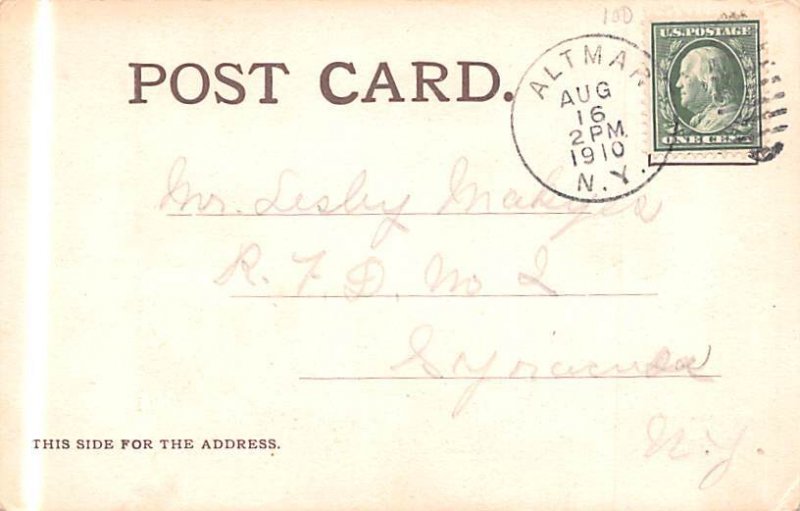 100
POST CARD.
ALTMAR
AUG
16
2 PM
1910
N.Y.
U.S. POSTAGE
ONE CENT
Mr. Lesly
R. F. D. No 2
Syracuse
N.Y.
THIS SIDE FOR THE ADDRESS.